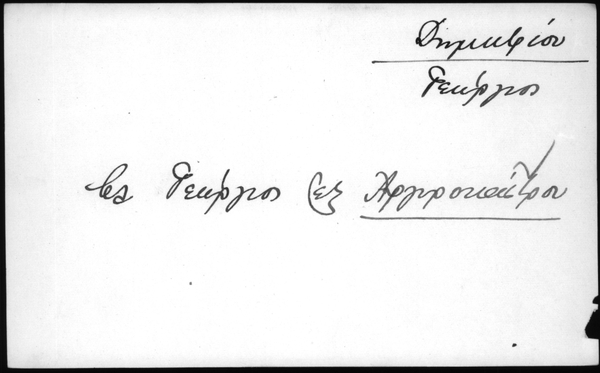 Δημητρίου
Γεώργιος
βλ Γεώργιος (εξ Αργυροκάστρου